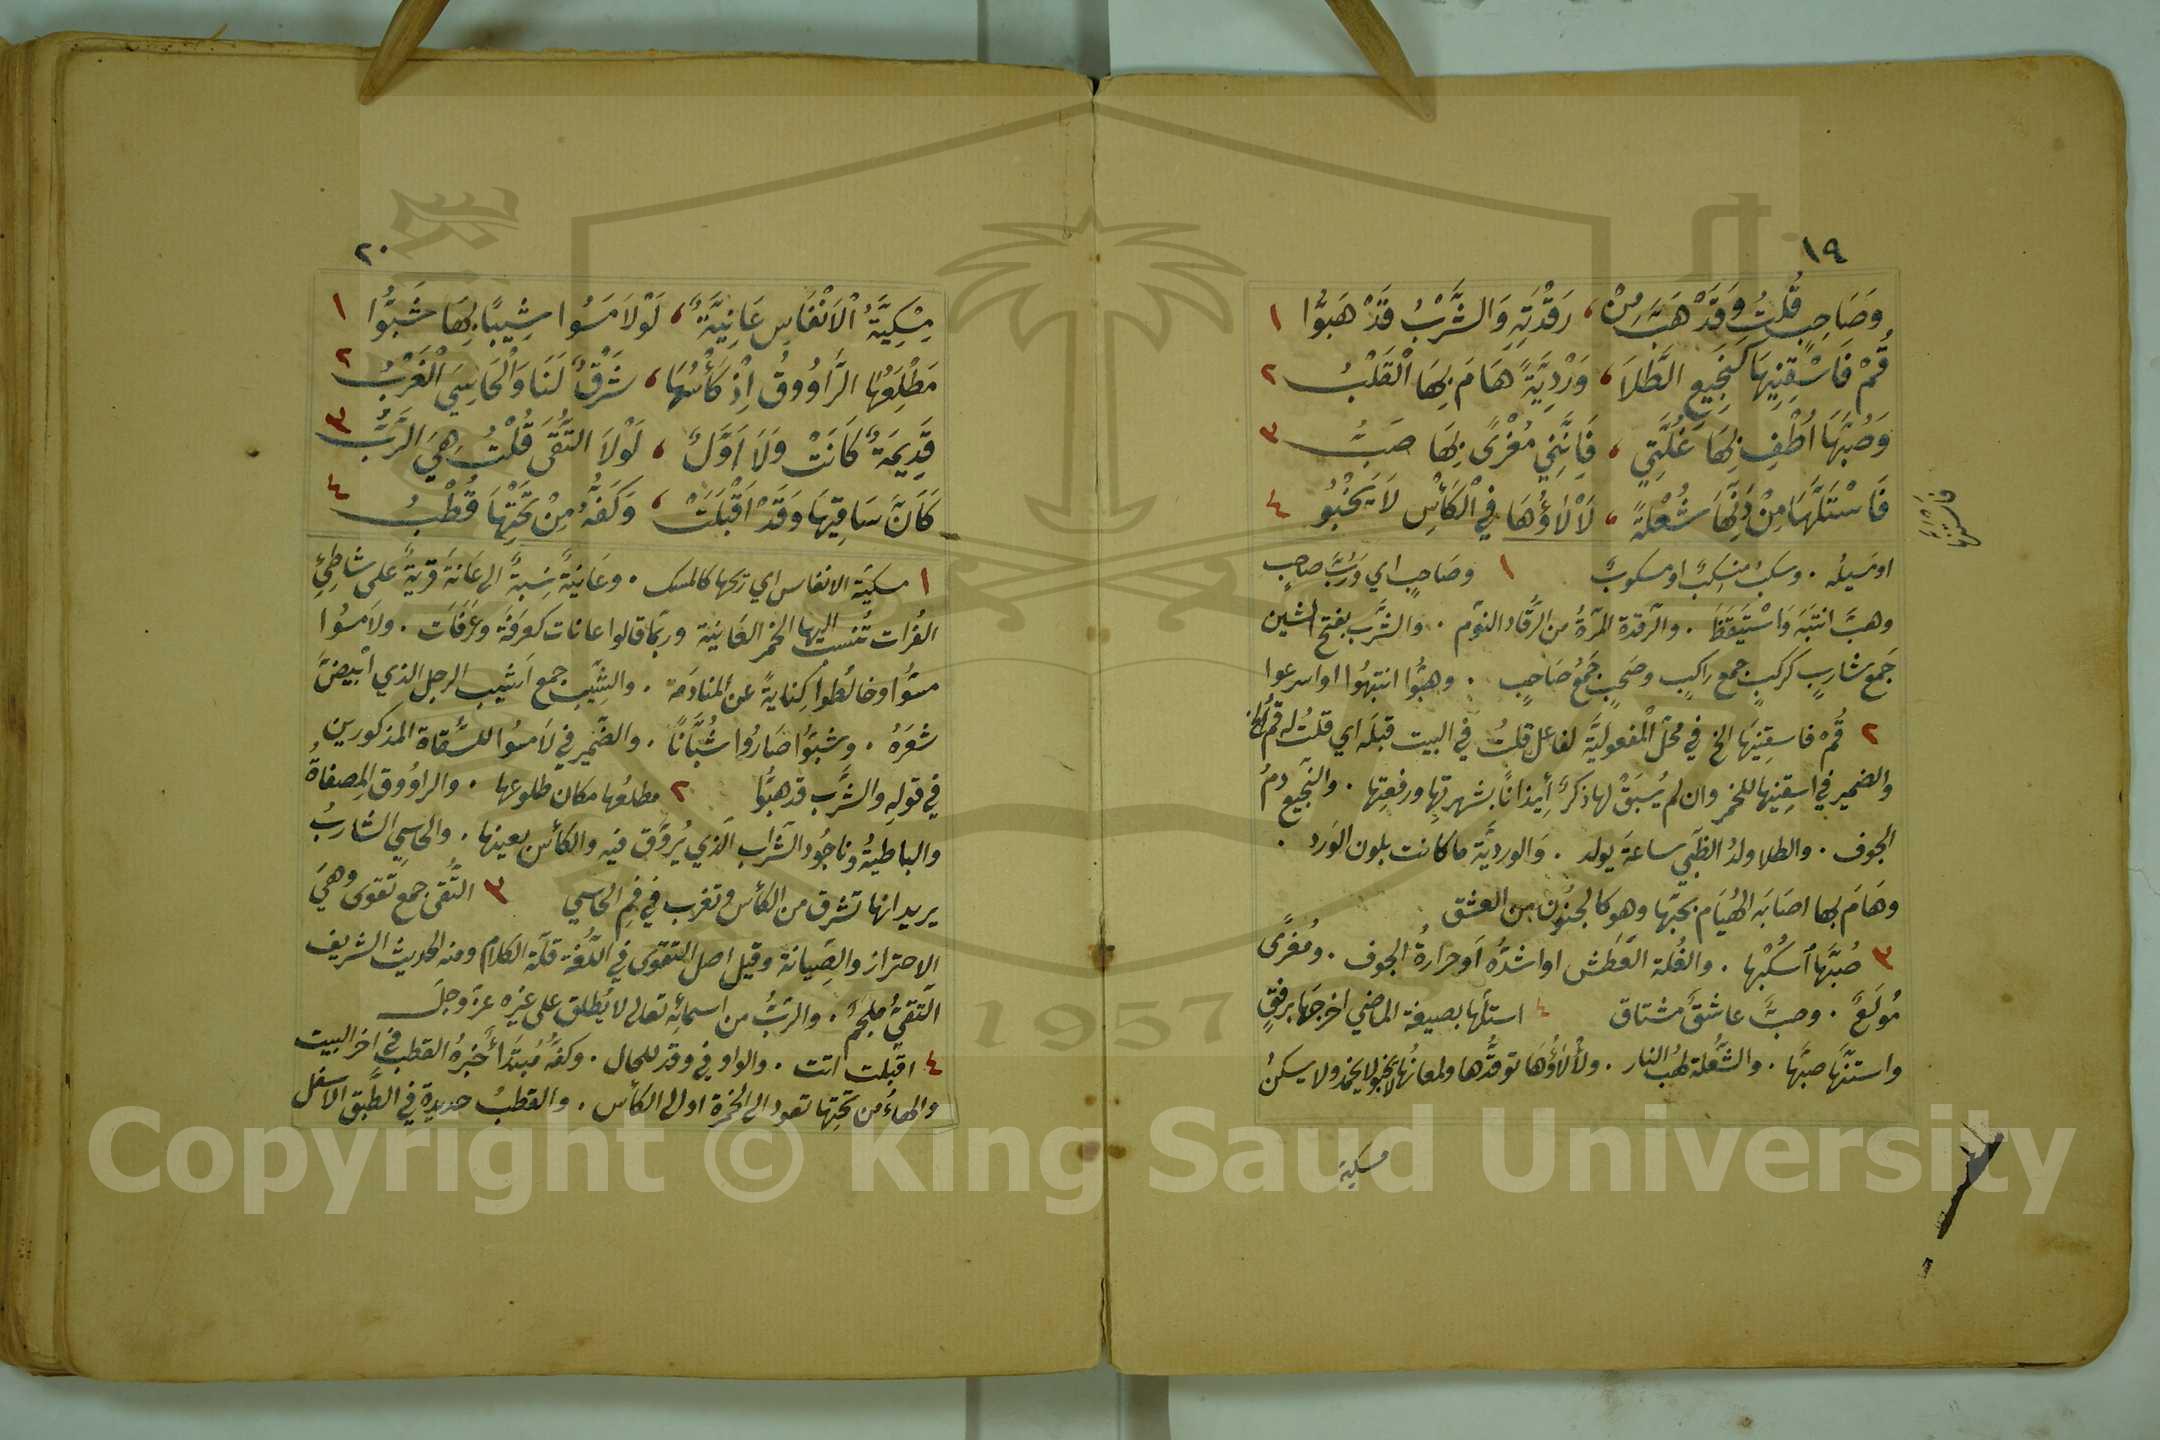 ١٩
وَصَاحِبٍ قُلْتُ وَقَدْ هَبَّ مِنْ ، رَقْدَتِهِ وَالشَّرْبُ قَدْ هَبُّوا ١
قُمْ فَاسْقِنِيهَا كَنَجِيعِ الطَّلَا ، وَرْدِيَّةً هَامَ بِهَا الْقَلْبُ ٢
وَصُبَّهَا أُطْفِ بِهَا غُلَّتِي ، فَإِنَّنِي مُغْرًى بِهَا صَبُّ ٣
فَاسْتَلَّهَا مِنْ دَنِّهَا شُعْلَةً ، لَأْلَاؤُهَا فِي الْكَأْسِ لَا يَخْبُو ٤
او مَسِيلُه . وسكبٌ منسكبٌ او مسكوبٌ ١ وصَاحِبٍ اي وَرُبَّ صاحبٍ
وهبَّ انتَبَهَ وَاسْتَيقَظَ . والرَقدة المرَّةُ من الرُّقاد النوم . والشَّرْب بفتح الشين
جَمع شاربٍ كركبٍ جمع راكبٍ وصَحبٍ جَمْعُ صَاحبٍ . وهبُّوا انتبهُوا او اسرعوا
٢ قُمْ فاسقِنِيهَا الخ في محَلّ المفعوليَّة لفاعل قلتُ في البيت قبلَه اي قلتُ له قم الخ
والضمير في اسقِنِيها للخمر وان لم يُسبَقْ لها ذكرٌ أِيذانًا بشهرتِهَا ورفعتِها . والنَّجيع دمُ
الجوف . والطلا ولدُ الظَّبي ساعةَ يولد . وَالورديَّة ما كانت بلون الوَرد .
وهَامَ بها اصَابَه الهُيَام بحبّها وهو كالجنُون من العشق
٣ صُبَّها ٱسكُبْها . والغُلة العَطَش او اشدُّه اَو حرارةُ الجوف . ومُغرًى
مُولَعٌ . وصبٌّ عاشقٌ مشتاق ٤ استلّها بصيغة الماضي اخرجَها برفقٍ
واستنّها صبَّها . والشُّعلة لهبُ النار . ولَأْلَاؤُهَا توقدُّها ولمعانُها لا يخبو لا يخمد ولا يسكنُ
مسكية
٢٠
مِسْكِيَّةُ الْأَنْفَاسِ عَانِيَّةٌ ، لَوْ لَامَسُوا شِيبًا بِهَا شَبُّوا ١
مَطْلِعُهَا الرَّاوُوقُ إِذْ كَأْسُهَا ، شَرْقٌ لَنَا وَالْحَاسِيَ الْغَرْبُ ٢
قَدِيمَةٌ كَانَتْ وَلَا أَوَّلٌ ، لَوْلَا التُّقَى قُلْتُ هِيَ الرَّبُّ ٣
كَأَنَّ سَاقِيهَا وَقَدْ أَقْبَلَتْ ، وَكَفُّهُ مِنْ تَحْتِهَا قُطْبُ ٤
١ مسكيَّة الانفاس اي ريحها كالمسك . وعَانيَّةٌ نِسْبَةً الى عَانَةَ قريةٌ على شاطِئِ
الفُرات تُنسبُ اليها الخمر العَانِيَّة وربّما قالوا عانات كعرفَة وعَرَفَات . ولَامَسُوا
مسُّوا وخالَطُوا كِنايةً عن المنادَمة . والشِّيب جمع اَشيب الرجل الذي ابيضَّ
شعرَهُ . وشبُّوا صَارُوا شُبَّانًا . والضَّمير في لَامسُوا للسُّقاة المذكورين
في قوله والشَّرب قد هبُّوا ٢ مطلعُها مكان طلوعها . والراوُوق المِصفاةُ
والباطيةُ وناجُود الشَّراب الَّذي يُروَّق فيه والكأس بعينها . والحاسِي الشاربُ
يريد انها تشرق من الكأس وتغرب في فم الحاسي ٣ التُّقى جمع تقوى وهيَ
الاحتراز والصِّيانة وقيل اصل التقوى في اللُّغة قلّة الكلام ومنه الحديث الشريف
التَّقيُّ ملجمٌ . والرَّبُّ من اسمائِه تعالى لا يُطلق على غيره عزّ وجلّ
٤ اقبلت اتت . والواو في وقد للحال . وكفُّهُ مُبتَدأ خبرُهُ القطب في اخر البيت
والهاءُ من تحتِها تعود الى الخمرة او الى الكأس . والقطبُ حديدة في الطَّبق الاسفل